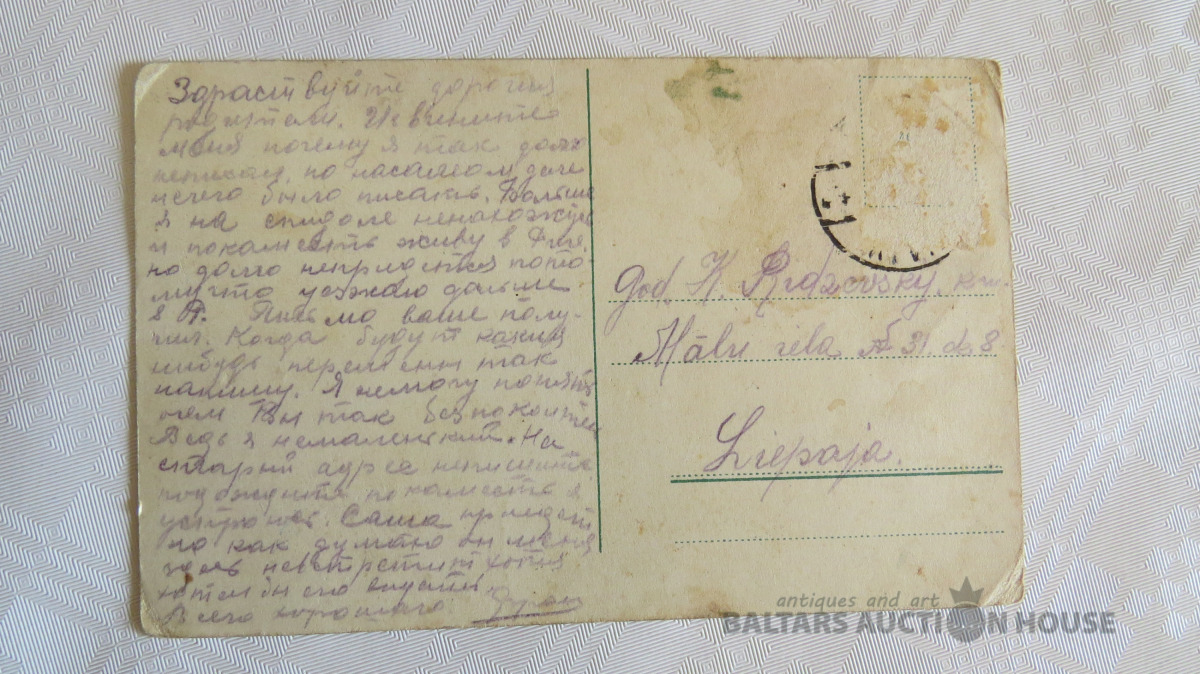 Здраствуйте дорогия
родители. Извините
меня почему я так долго
неписал, но насамом деле
нечего было писать. Больше
я на ненахожусь
и покаместь живу в
но долго непридется пото-
мучто уезжаю дальше
в Р. Письмо ваше полу-
чил. Когда будут какия
нибудь перемены так
напишу. Я немогу понять
чем Вы так безпокоитесь
Ведь я немаленький. На
старый адрес непишите
подождите покаместь я
устроюсь. Саша приедет
но как думаю он меня
здесь невстретит хотя
хотел бы его видеть.
Всего хорошаго
God. K.
Mālu iela № 31. d. 8
Liepaja.
antiques and art
BALTARS AUCTION HOUSE